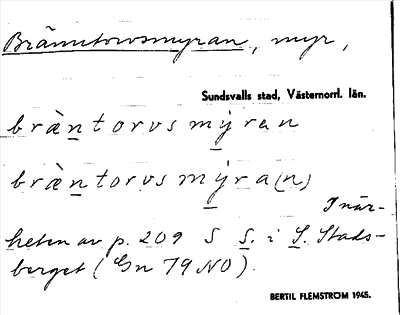 Bränntorvsmyran, myr,
Sundsvalls stad, Västernorrl. län.
bràntorvs mýran
bràntorvs mýra(n)
I när-
heten av p. 209 S S. i S. Stads-
berget (Gn 79 NO).
BERTIL FLEMSTRÖM 1945.